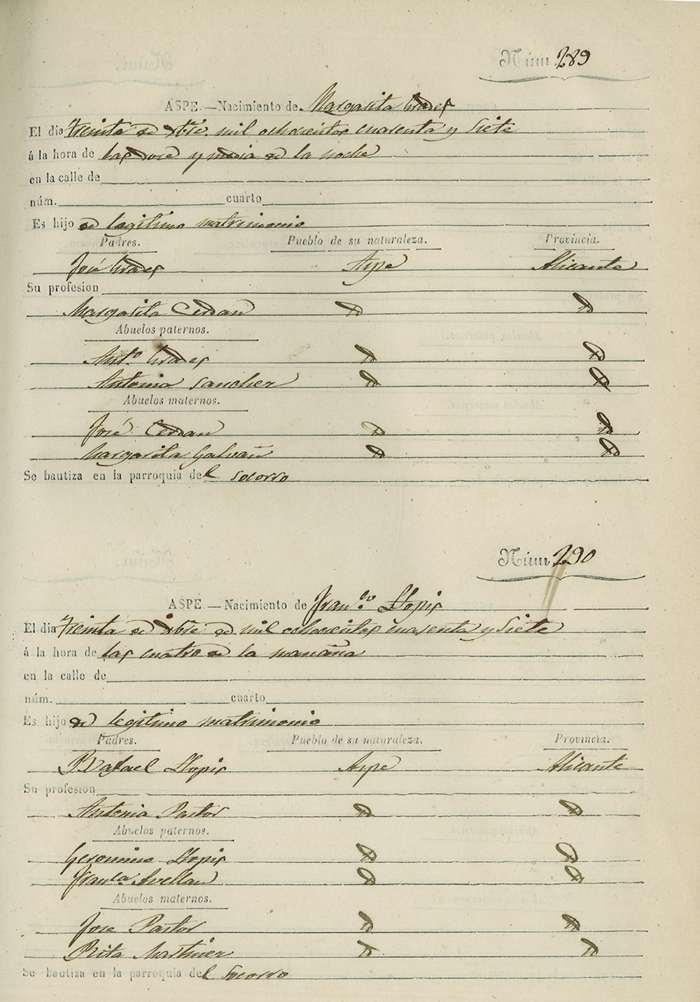 Núm 289
ASPE.—Nacimiento de Margarita
El dia treinta de mil ochocientos cuarenta y siete
á la hora de las doce y media de la noche
en la calle de
núm. cuarto
Es hijo de legitimo matrimonio
Padres. Pueblo de su naturaleza. Provincia.
José Aspe Alicante
Su profesion
Margarita Cerdan
Abuelos paternos.
Ant.o
Antonia Sanchez
Abuelos maternos.
José Cerdan
Margarita Galvañ
Se bautiza en la parroquia del Socorro
Núm 290
ASPE.—Nacimiento de Fran.co Llopis
El dia treinta de de mil ochocientos cuarenta y siete
á la hora de las cuatro de la mañana
en la calle de
núm. cuarto
Es hijo de legitimo matrimonio
Padres. Pueblo de su naturaleza. Provincia.
Rafael Llopis Aspe Alicante
Su profesion
Antonia Pastor
Abuelos paternos.
Geronimo Llopis
Fran.ca Avellan
Abuelos maternos.
Jose Pastor
Rita Martinez
Se bautiza en la parroquia del Socorro